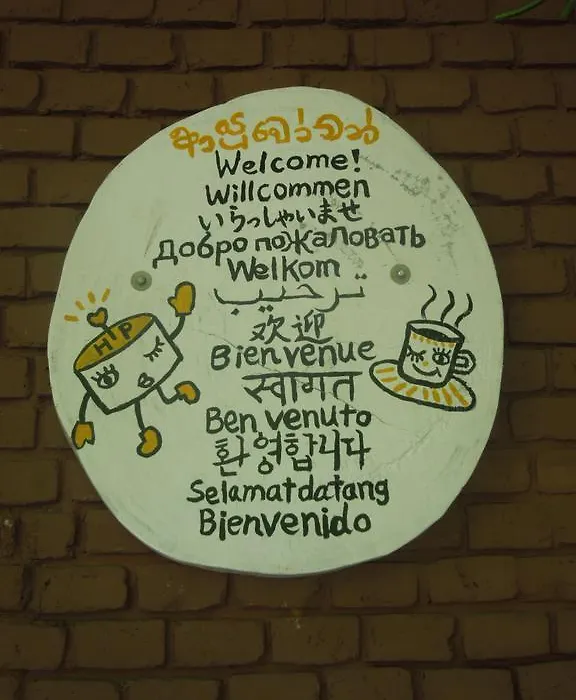 ආයුබෝවන්
Welcome!
Willcommen
いらっしゃいませ
Добро пожаловать
Welkom
ترحيب
欢迎
Bienvenue
स्वागत
Benvenuto
환영합니다
Selamat datang
Bienvenido
HIP